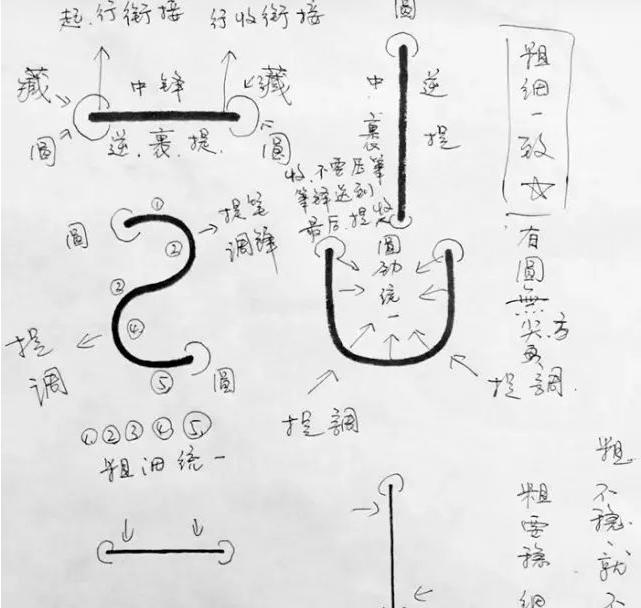 起.行衔接
行收衔接
藏
中锋
藏
圓
逆.裹.提.
圓
圓
中裹
逆提
收.不要压筆
筆锋送到
最后.提收
粗细一致☆
有圓無尖方
圓
①
提笔
调锋
②
③
④
⑤
圓
提
调
①②③④⑤
粗细统一
圓
劲
统
一
提調
提調.
粗要稳
细
粗.
不稳.就
不